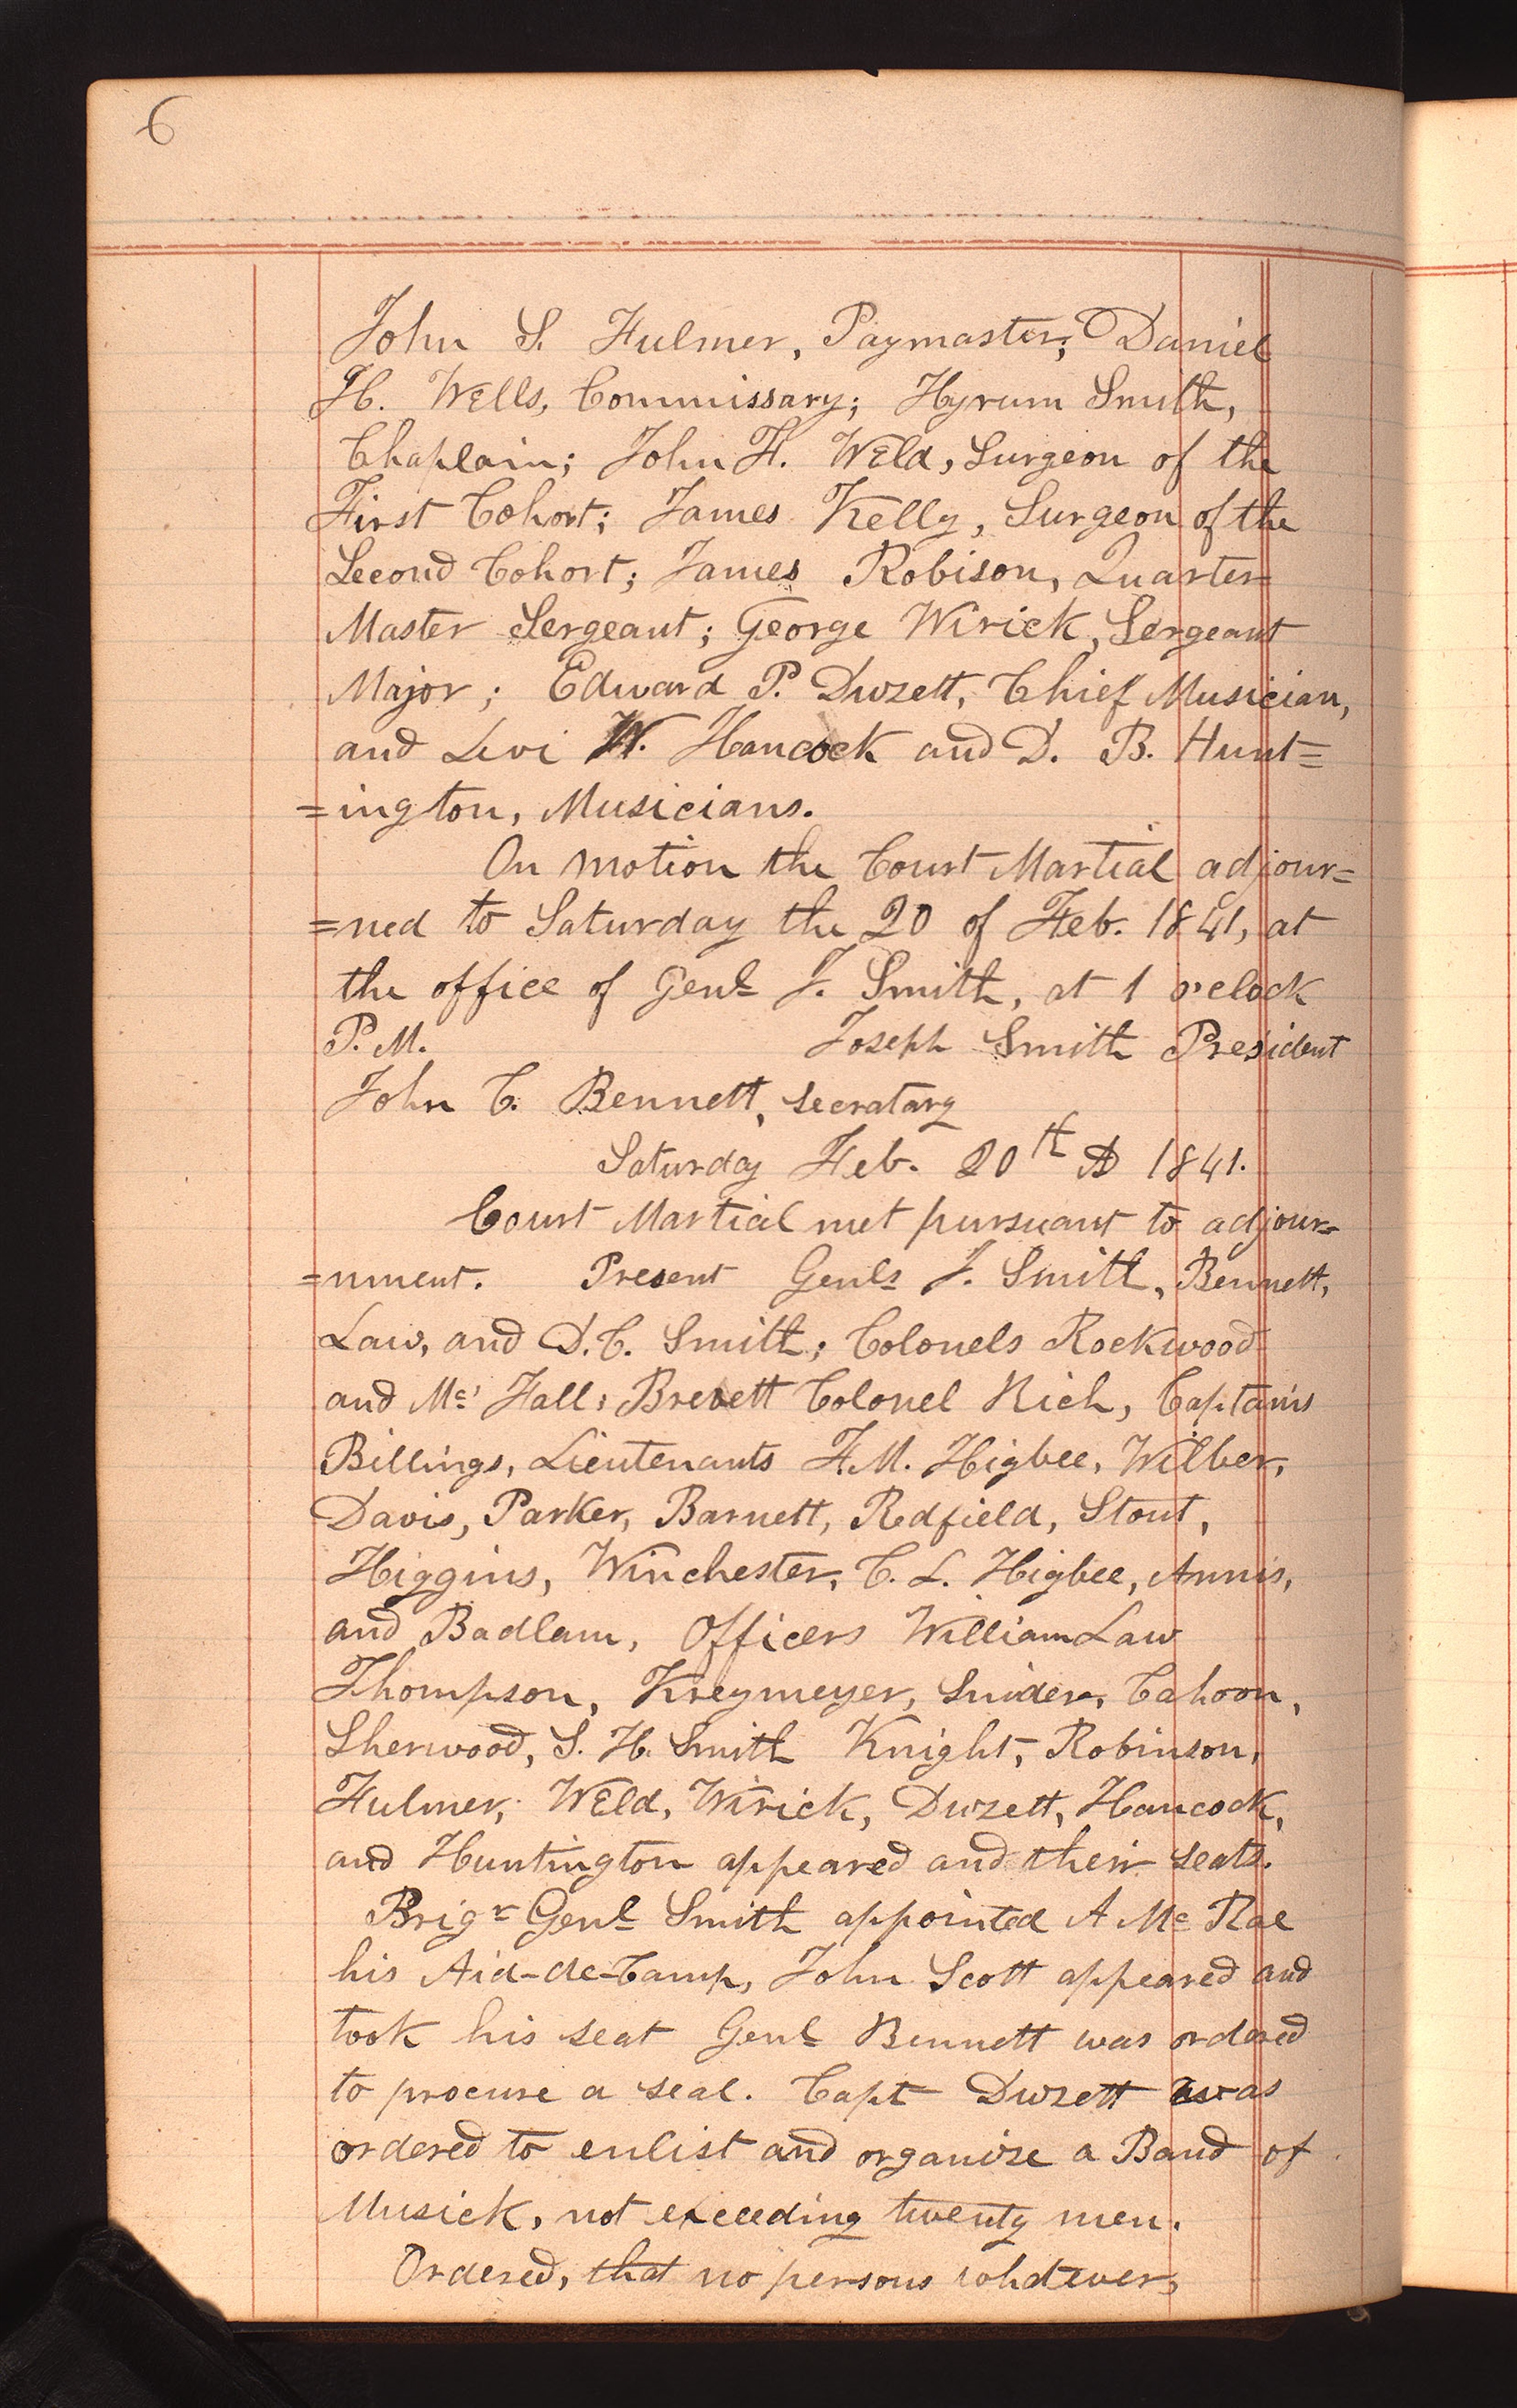 6
John S. Fulmer, Paymaster; Daniel
H. Wells, Commissary; Hyrum Smith,
Chaplain; John F. Weld, Surgeon of the
First Cohort; James Kelly, Surgeon of the
Second Cohort; James Robison, Quarter-
Master Sergeant; George Wirick, Sergeant
Major; Edward P. Duzett, Chief Musician,
and Levi W. Hancock and D. B. Hunt=
=ington, Musicians.
On motion the Court Martial adjour=
=ned to Saturday the 20 of Feb. 1841, at
the office of Genl J. Smith, at 1 o'clock
P. M. Joseph Smith President
John C. Bennett, secratary
Saturday Feb. 20th AD 1841.
Court Martial met pursuant to adjour=
=nment. Present Genls J. Smith, Bennett,
Law, and D. C. Smith; Colonels Rockwood
and Mc Fall; Brevett Colonel Rich, Captains
Billings, Lieutenants F. M. Higbee, Wilber,
Davis, Parker, Barnett, Redfield, Stout,
Higgins, Winchester, C. L. Higbee, Annis,
and Badlam, Officers William Law
Thompson, Kreymeyer, Snider, Cahoon,
Sherwood, S. H. Smith Knight, Robinson,
Fulmer, Weld, Wirick, Duzett, Hancock,
and Huntington appeared and their seats.
Brigr Genl Smith appointed A Mc Rae
his Aid-de-Camp, John Scott appeared and
took his seat Genl Bennett was ordered
to procure a seal. Capt Duzett was
ordered to enlist and organize a Band of
Musick, not exceeding twenty men.
Ordered, that no persons whatever,